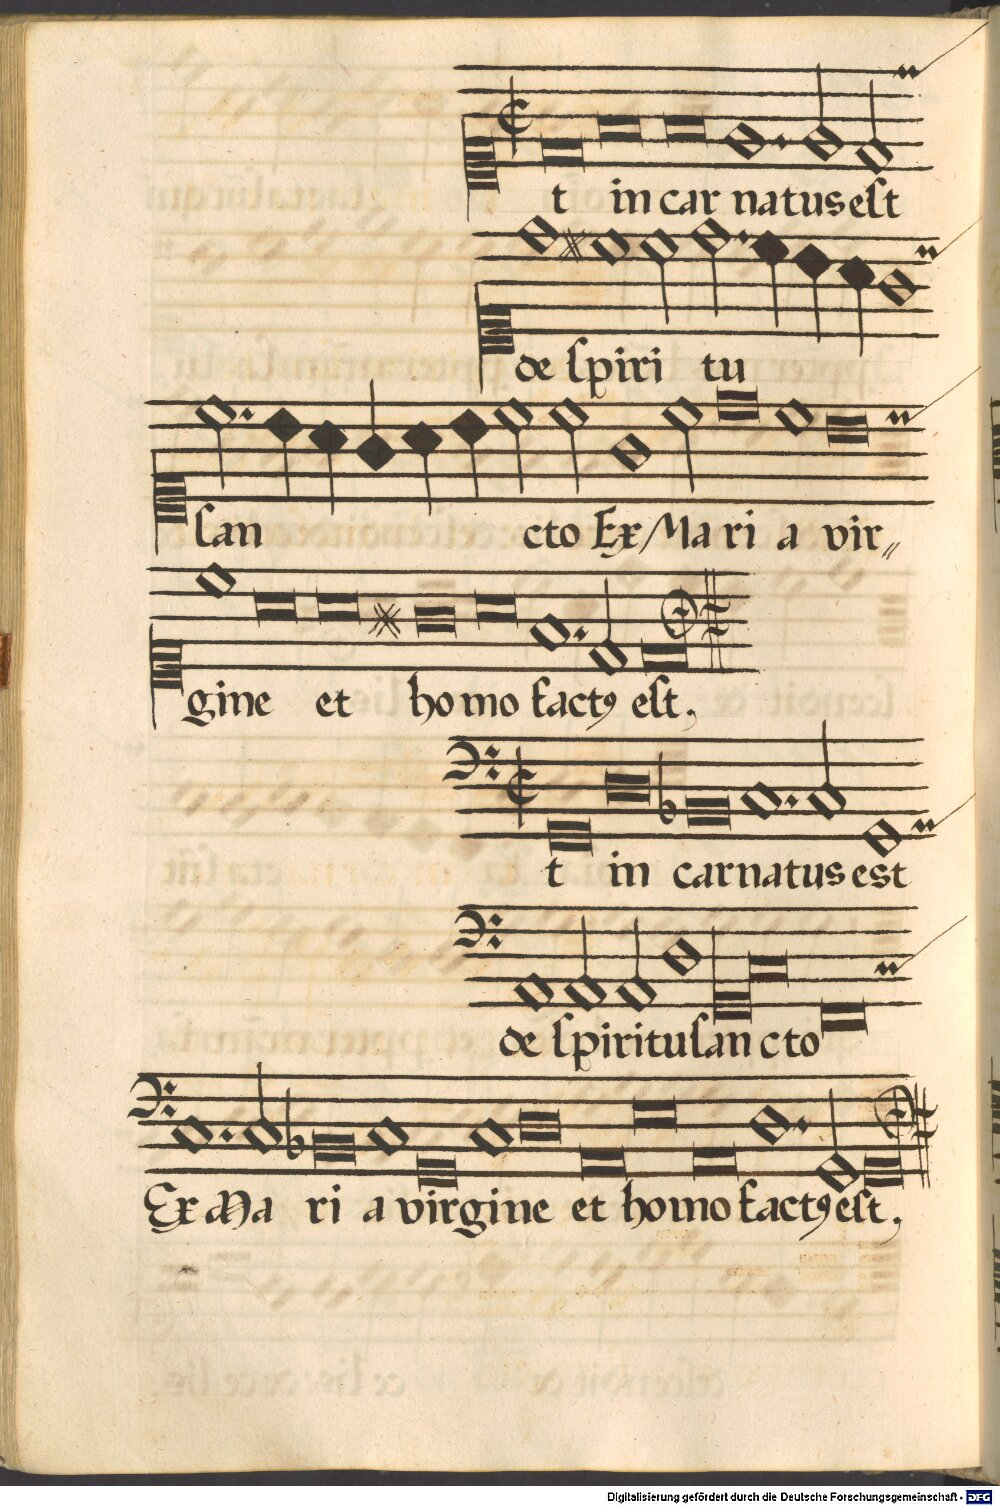 t in car natus est
de spiri tu
san cto Ex Ma ri a vir〃
gine et homo factꝰ est.
t in carnatus est
de spiritu san cto
Ex Ma ri a virgine et homo factꝰ est.
Digitalisierung gefördert durch die Deutsche Forschungsgemeinschaft - DFG